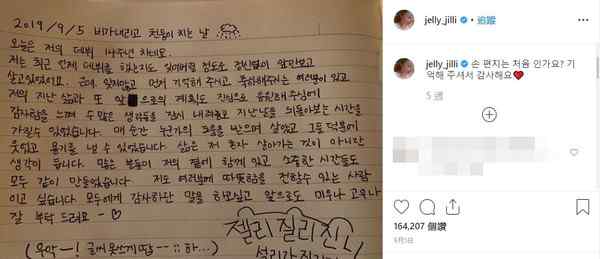 2019 / 9 / 5 비가내리고 천둥이 치는 날
오늘은 저의 데뷔 14주년 차네요.
저는 최근 언제 데뷔를 했는지도 잊어버릴 정도로 정신없이 앞만보고
살고있었어요. 근데 잊지않고 먼저 기억해 주시고 축하해주시는 여러분이 있고
저의 지난 삶과 또 앞으로의 계획도 진심으로 응원해주심에
감사함을 느끼며 수 많은 생각들을 잠시 내려놓고 지난날을 되돌아보는 시간을
가질수 있었습니다. 매 순간 누군가의 도움을 받으며 살았고 그들 덕분에
웃었고 용기를 낼 수 있었습니다. 삶은 저 혼자 살아가는 것이 아니란
생각이 듭니다. 많은 분들이 저의 곁에 함께 있고 소중한 시간들도
모두 같이 만들었습니다. 저도 여러분께 따뜻함을 전할수 있는 사람
이고 싶습니다. 모두에게 감사하단 말을 하고싶고 앞으로도 미우나 고우나
잘 부탁 드려요 - ♡
젤리 질리 진니
(우악 ー! 글씨 못쓰게 땀 --;; 하...)
설리가
jelly_jilli • 追蹤
jelly_jilli 손 편지는 처음 인가요? 기
억해 주셔서 감사해요❤
5 週
164,207 個讚
9月5日